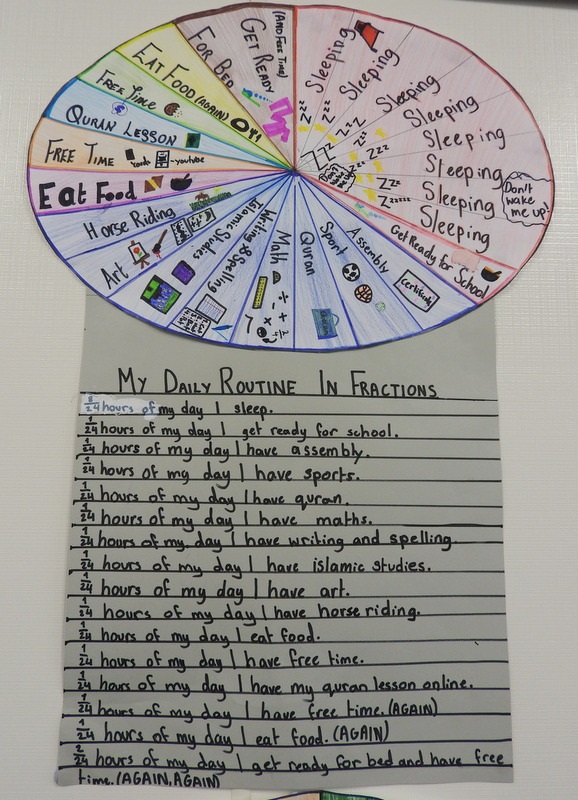 (And Free Time)
Get Ready
For Bed
Eat Food (again)
Free Time
Quran Lesson
Free Time
-youtube
Eat Food
Horse Riding
Art
Islamic Studies
Writing & Spelling
Math
Quran
Sport
Assembly
Certificate
Get Ready for School
Sleeping
Sleeping
Sleeping
Sleeping
Sleeping
Sleeping
Sleeping
Sleeping
Don't
wake
me up!
My Daily Routine In Fractions
8/24 hours of my day I sleep.
1/24 hours of my day I get ready for school.
1/24 hours of my day I have assembly.
1/24 hours of my day I have sports.
1/24 hours of my day I have quran.
1/24 hours of my day I have maths.
1/24 hours of my day I have writing and spelling.
1/24 hours of my day I have islamic studies.
1/24 hours of my day I have art.
1/24 hours of my day I have horse riding.
1/24 hours of my day I eat food.
1/24 hours of my day I have free time.
1/24 hours of my day I have my quran lesson online.
1/24 hours of my day I have free time. (AGAIN)
1/24 hours of my day I eat food. (AGAIN)
2/24 hours of my day I get ready for bed and have free
time. (AGAIN, AGAIN)